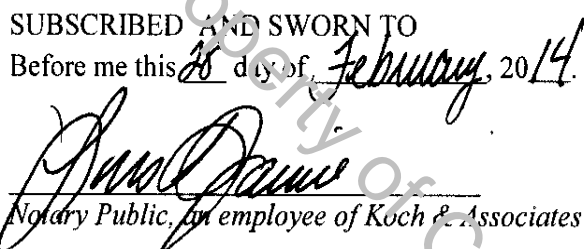 SUBSCRIBED AND SWORN TO
Before me this 28 day of, February, 2014.
Notary Public, an employee of Koch & Associates
Property of C